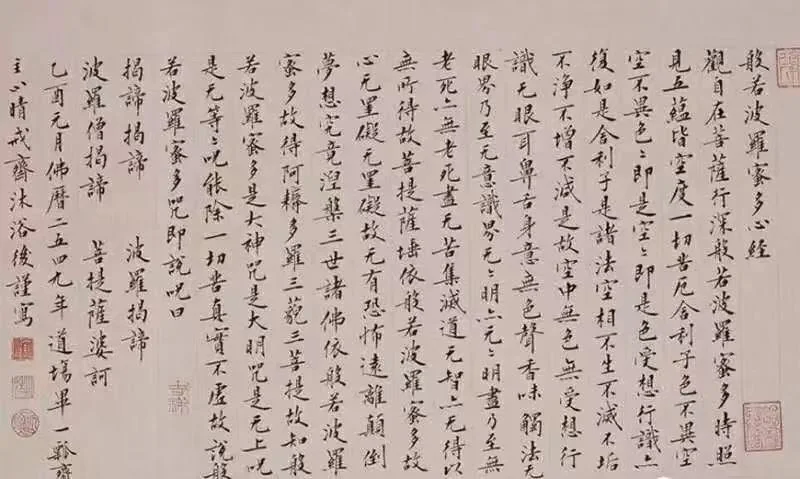 般若波羅蜜多心經
觀自在菩薩行深般若波羅蜜多時照
見五蘊皆空度一切苦厄舍利子色不異空
空不異色〻即是空〻即是色受想行識亦
復如是舍利子是諸法空相不生不滅不垢
不淨不增不減是故空中無色無受想行
識无眼耳鼻舌身意無色聲香味觸法无
眼界乃至无意識界无〻明亦无〻明盡乃至無
老死亦無老死盡无苦集滅道无智亦无得以
無所得故菩提薩埵依般若波羅蜜多故
心无罣礙无罣礙故无有恐怖遠離顛倒
夢想究竟涅槃三世諸佛依般若波羅
蜜多故得阿耨多羅三藐三菩提故知般
若波羅蜜多是大神咒是大明咒是无上咒
是无等〻咒能除一切苦真實不虛故說般
若波羅蜜多咒即說咒曰
揭諦揭諦 波羅揭諦
波羅僧揭諦 菩提薩婆訶
乙酉元月佛曆二五四九年道場畢一瓢齋
主人晴戒齋沐浴後謹寫